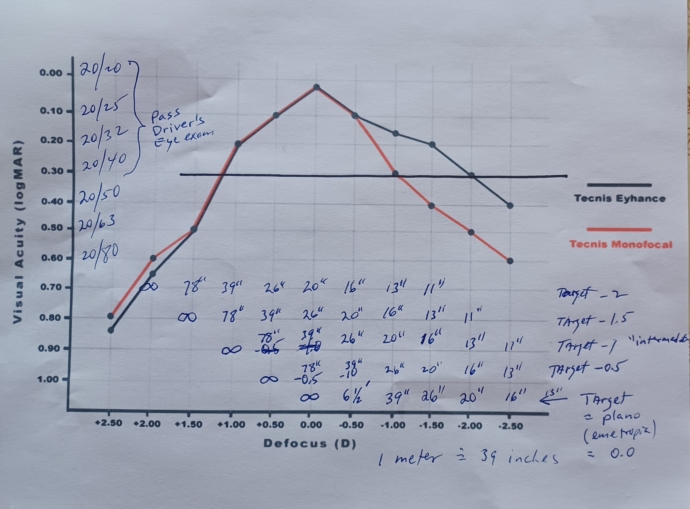 0.00 20/20
0.10 20/25
0.20 20/32
0.30 20/40
0.40 20/50
0.50 20/63
0.60 20/80
0.70
0.80
0.90
1.00
Pass
Driver's
Eye exam
Visual Acuity (logMAR)
Tecnis Eyhance
Tecnis Monofocal
∞ 78" 39" 26" 20" 16" 13" 11" Target -2
∞ 78" 39" 26" 20" 16" 13" 11" Target -1.5
∞ 78" 39" 26" 20" 16" 13" 11" Target -1 "intermediate
-0.5 -1.0
∞ 78" 39" 26" 20" 16" 13" Target -0.5
-0.5 -1.0
∞ 6½' 39" 26" 20" 16" 13" ← Target
= plano
(emetropia)
= 0.0
+2.50 +2.00 +1.50 +1.00 +0.50 0.00 -0.50 -1.00 -1.50 -2.00 -2.50
Defocus (D)
1 meter ≐ 39 inches